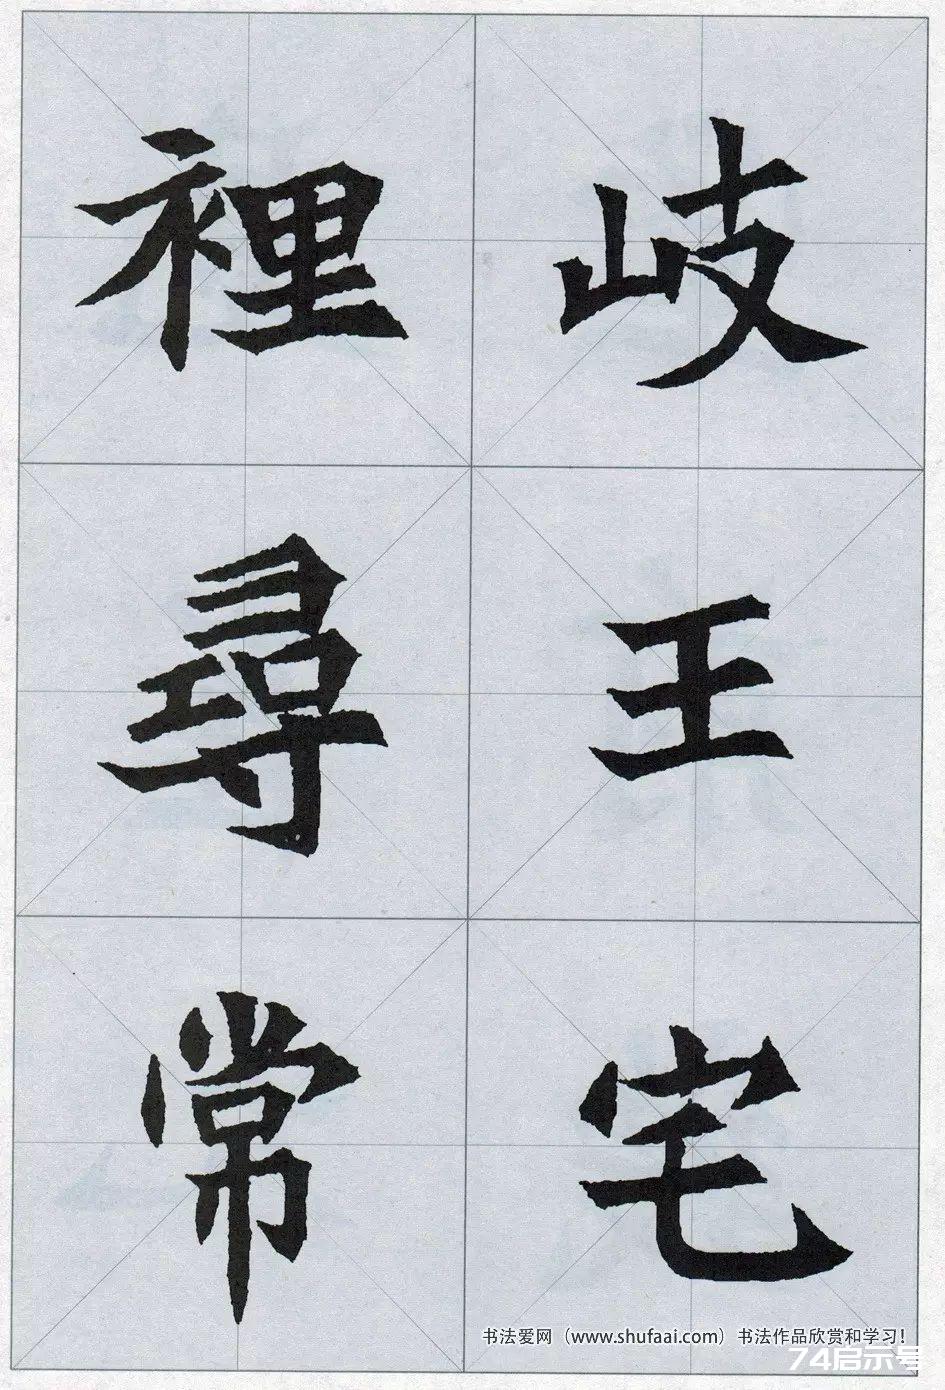 岐王宅
裡尋常
书法爱网（www.shufaai.com）书法作品欣赏和学习！
74启示号